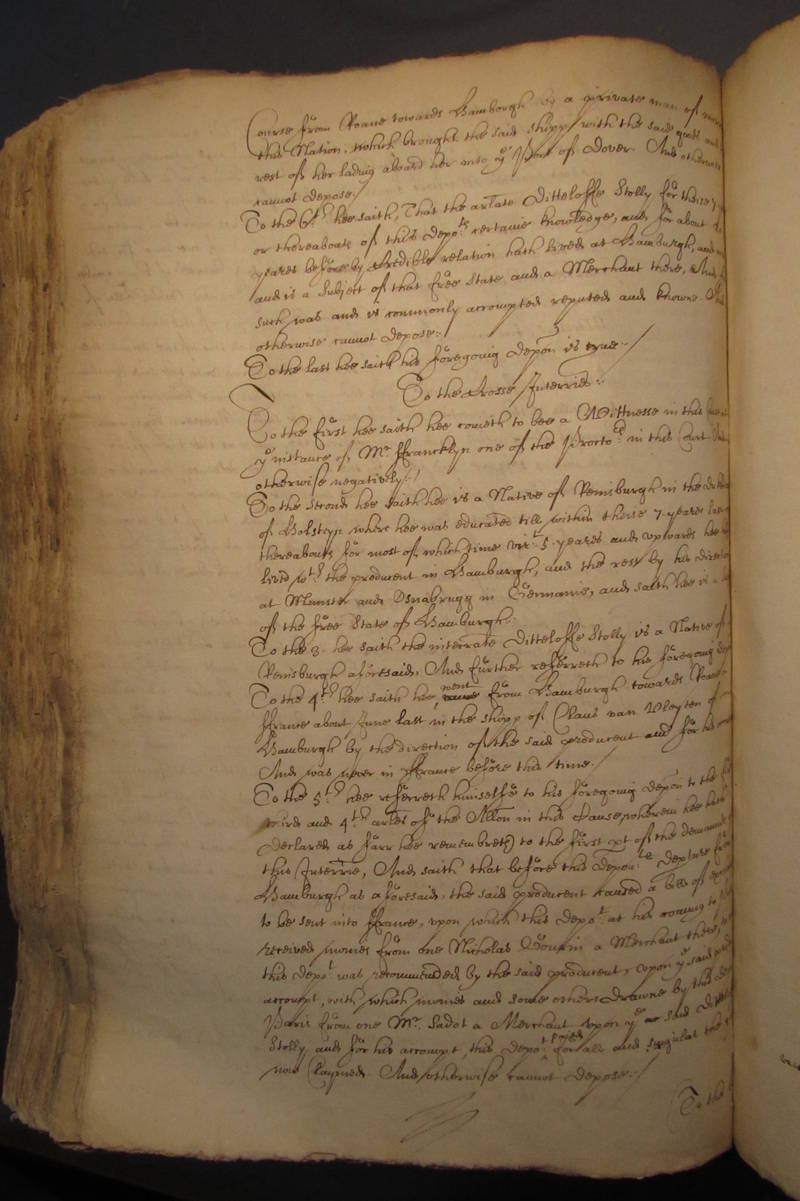 Course from Roane towards Hamborgh by a private man of warr of
this Nation, which brought the said shipp with the said goods and
rest of her lading aboard her into ye Port of Dover. And otherwise
cannot depose./
To the 6th hee saith, That the arlate Ditteloffe Stolly for these 7
or thereabouts of this depots certaine knowledge, and for about
yeares before by Credible relation hath lived at Hamburgh, and
and is a Subject of that free State and a Merchant there, And
such was and is commonly accompted reputed and knowne. And
otherwise cannot depose./
To the last hee saith his foregoing deposn is true./
To the Crosse Interries./
To the first hee saith hee cometh to bee a Wittnesse in this
ye instance of Mr ffrancklyn one of the Proctors in this Court And
otherwise negatively./
To the second hee saith hee is a Native of Rensburgh in the
of Holsteyn where hee was educated till within these 7 yeares last
thereabouts for most of which time vizt 5 yeares and upwards hee
lived wth the producent in Hamburgh, and the rest by his direction
at Munster and Osnabrugg in Germanie, and saith hee is
of the free State of Hamburgh.
To the 3. hee saith the interrate Ditteloffe Stolly is a Native of
Rensburgh aforesaid, And further referreth to his foregoing
To the 4th hee saith hee went from Hamburgh towards Roane
ffrance about June last in the shipp of Claus van Vleyten of
Hamburgh by the direction of the said producent and for his
And was never in ffrance before this time./
To the 5th hee referreth himselfe to his foregoing deposn to the
third and 4th arles of the Allon in this Cause, wherein hee hath
declared as farr hee remembreth to the first pt of the demands
this Interrie, And saith that before this deponts depture from
Hamburgh as aforesaid, the said producent caused a bill of
to be sent into ffrance, upon which this depot at his coming to
received monies from one Nicholas Gouxin a Merchant there,
this depot was recommended by the said producent, upon ye said
accompt, with which monies and some others drawne by this
Paris from one Mr. Sadot a Merchant upon ye said
Stolly and for his accompt, this depot payed for all and singular the
now claymed. And otherwise cannot depose./
To the